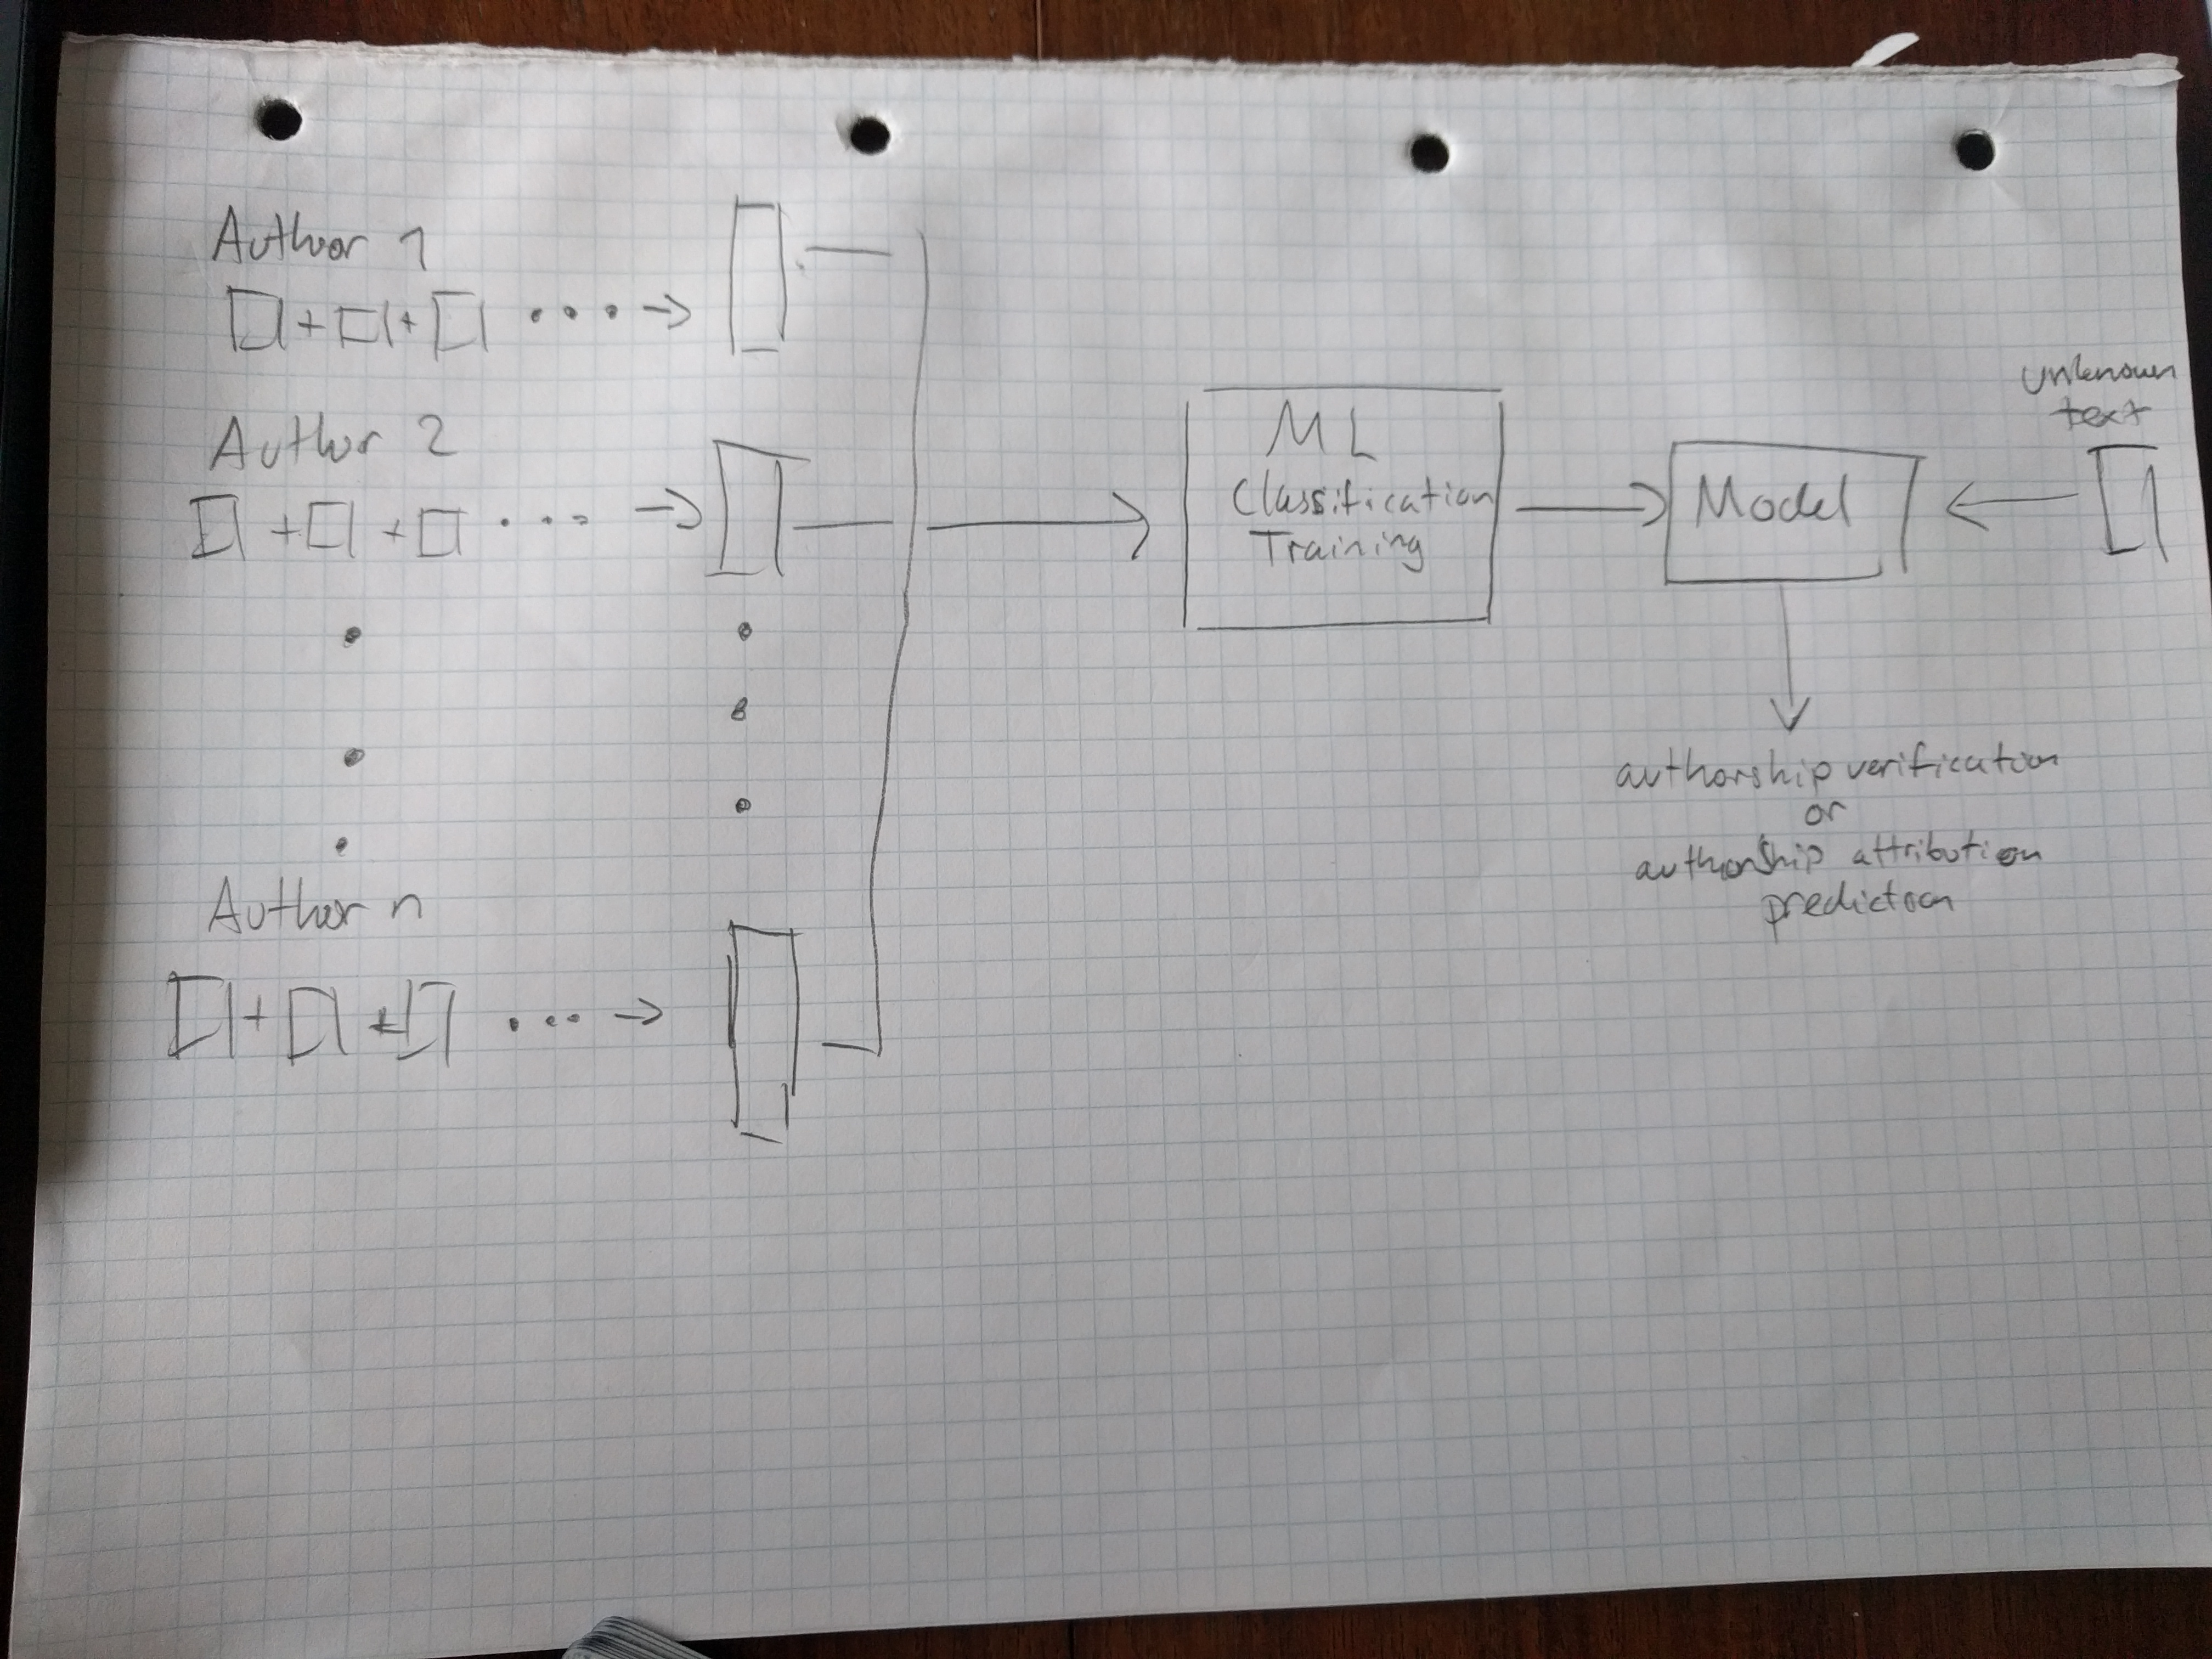 Author 1
+ + .... →
Author 2
+ + .... →
Author n
+ + .... →
ML
Classification
Training
Model
unknown
text
authorship verification
or
authorship attribution
prediction